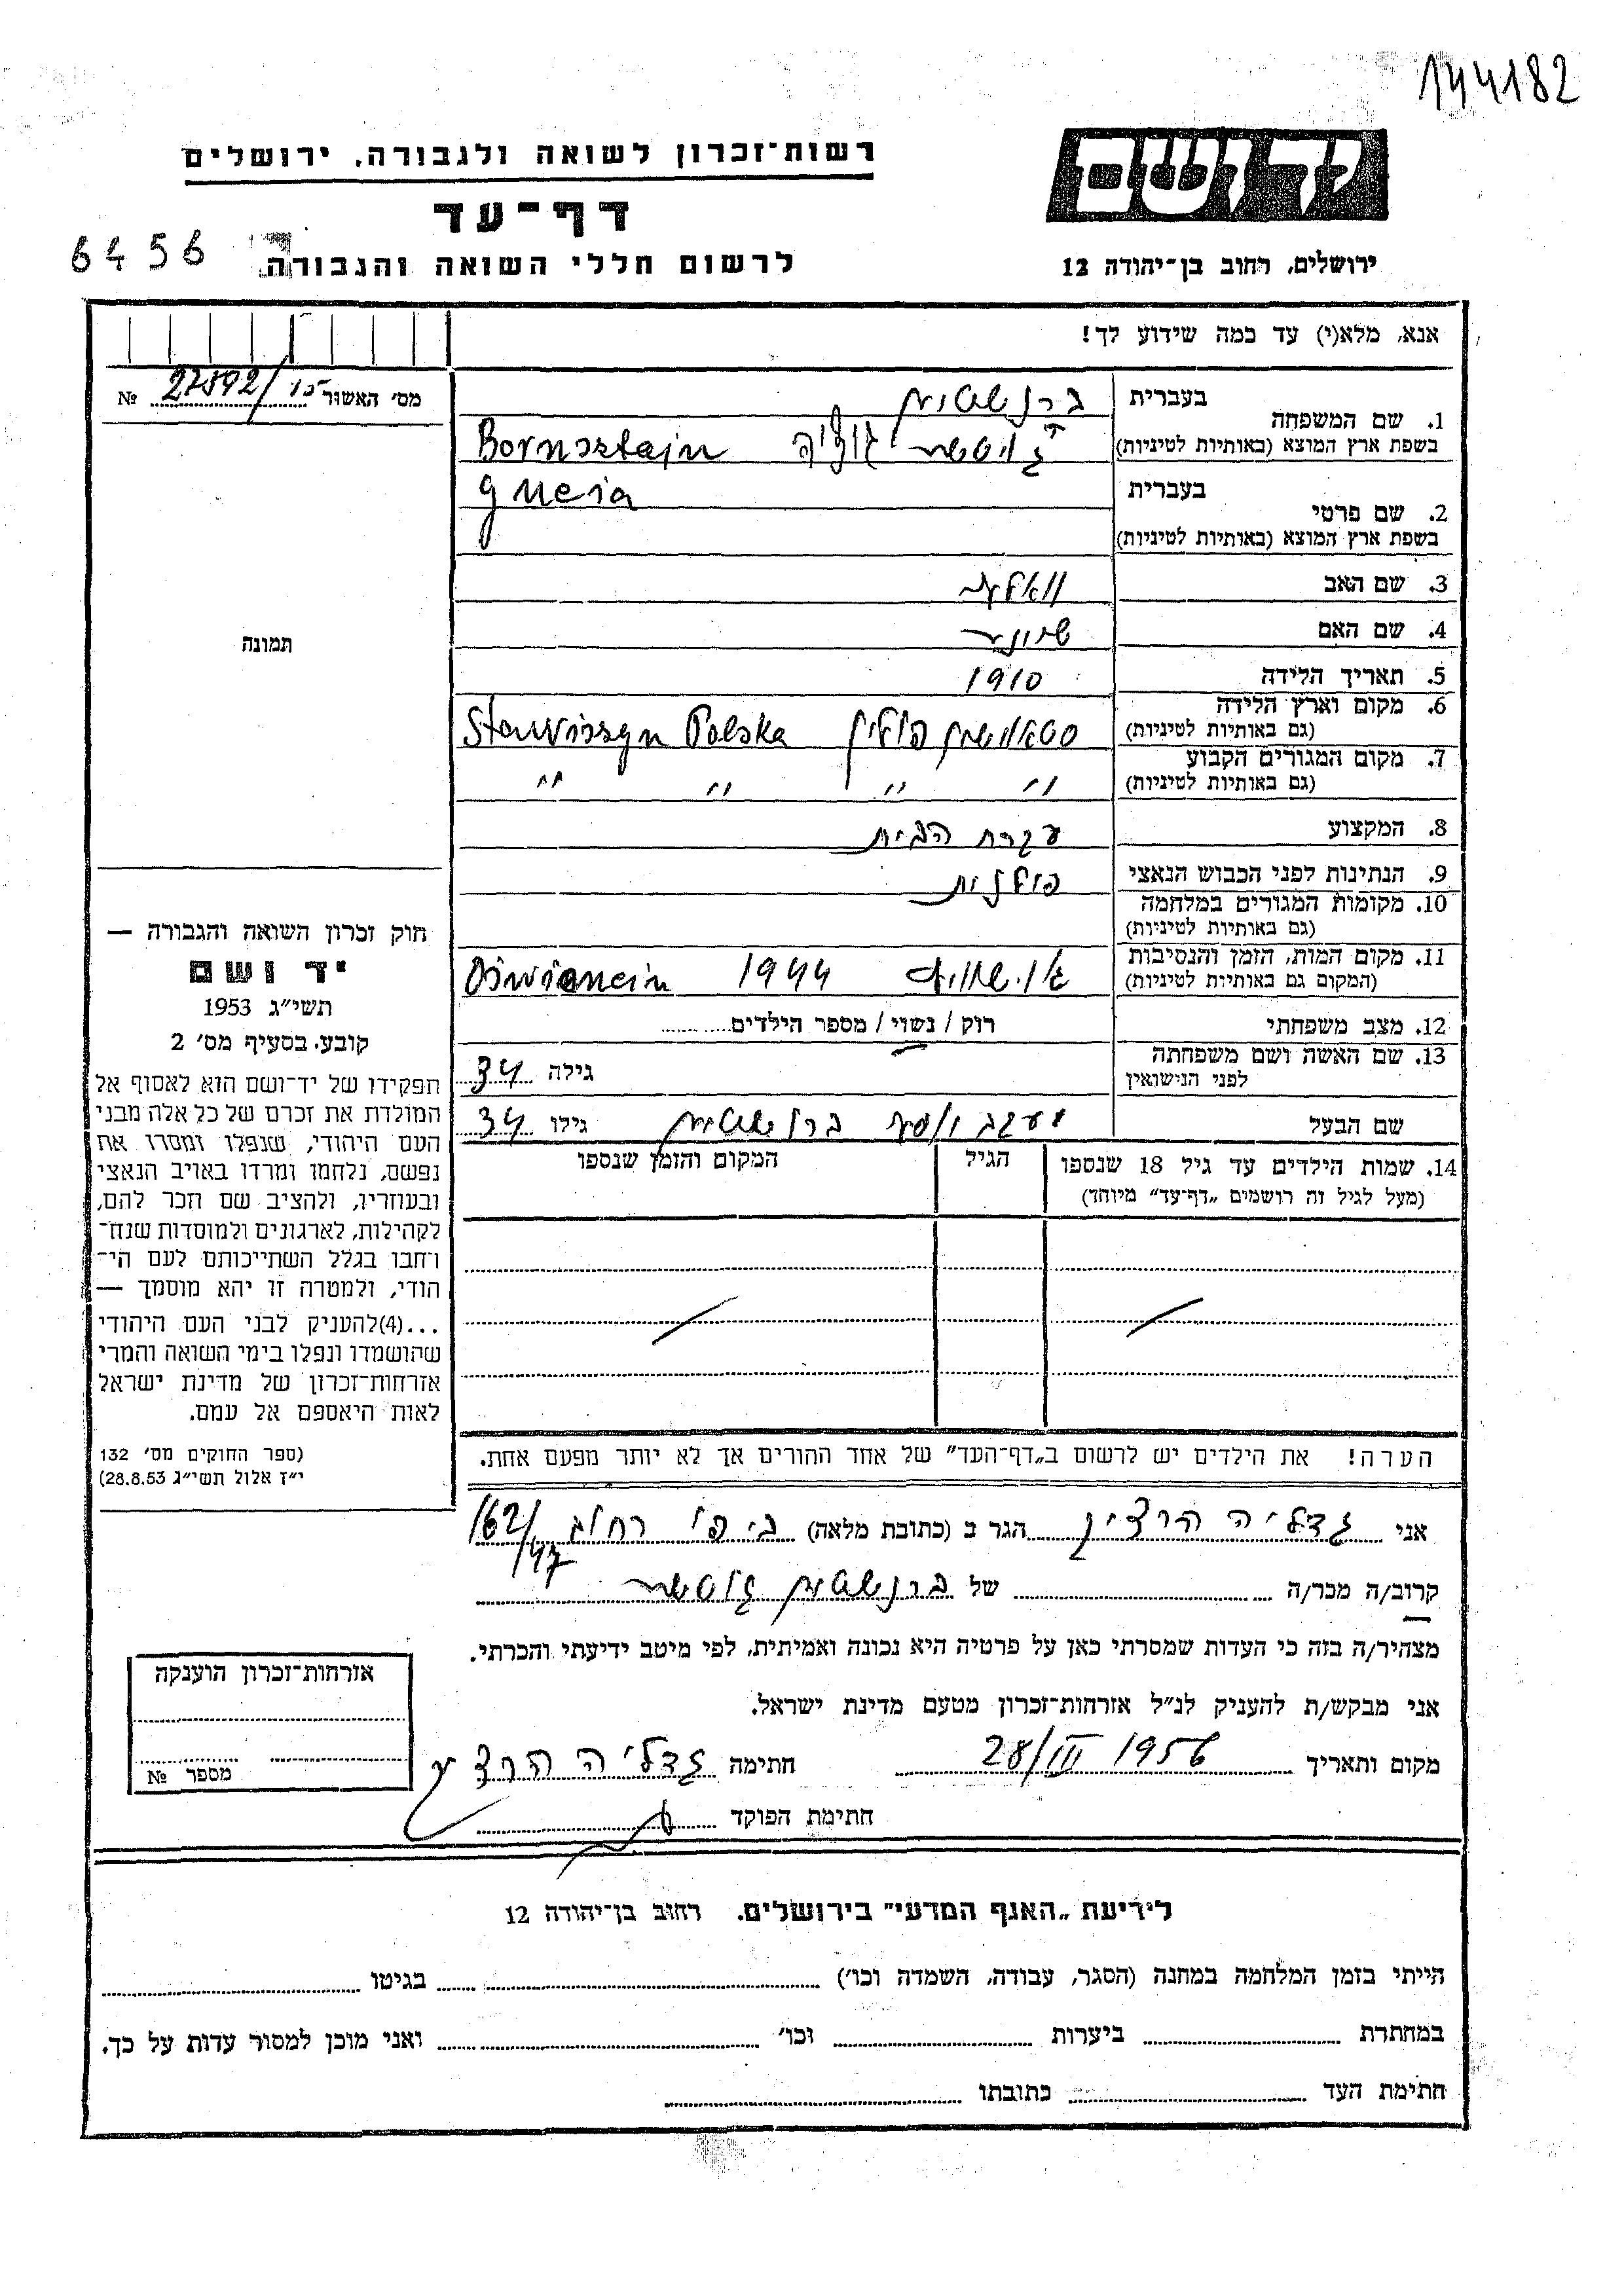 144182
יד ושם
רשות־זכרון לשואה ולגבורה, ירושלים
דף־עד
6456 לרשום חללי השואה והגבורה
ירושלים, רחוב בן־יהודה 12
אנא, מלא(י) עד כמה שידוע לך!
מס׳ האשור № 27592/15
1. שם המשפחה בעברית ברנשטיין
בשפת ארץ המוצא (באותיות לטיניות) Bornsztajn
2. שם פרטי בעברית
בשפת ארץ המוצא (באותיות לטיניות)
3. שם האב
4. שם האם
5. תאריך הלידה 1910
6. מקום וארץ הלידה (גם באותיות לטיניות) פולין Stawiszyn Polska
7. מקום המגורים הקבוע (גם באותיות לטיניות) " " " "
8. המקצוע עקרת הבית
9. הנתינות לפני הכבוש הנאצי פולנית
10. מקומות המגורים במלחמה (גם באותיות לטיניות)
11. מקום המות, הזמן והנסיבות (המקום גם באותיות לטיניות) 1944
12. מצב משפחתי רווק / נשוי / מספר הילדים
13. שם האשה ושם משפחתה לפני הנישואין גילה 34
שם הבעל ברנשטיין גילו 34
14. שמות הילדים עד גיל 18 שנספו (מעל לגיל זה רושמים „דף־עד” מיוחד)
הגיל
המקום והזמן שנספו
הערה! את הילדים יש לרשום ב„דף־העד” של אחד ההורים אך לא יותר מפעם אחת.
תמונה
חוק זכרון השואה והגבורה —
יד ושם
תשי״ג 1953
קובע בסעיף מס׳ 2
תפקידו של יד־ושם הוא לאסוף אל
המולדת את זכרם של כל אלה מבני
העם היהודי, שנפלו ומסרו את
נפשם, נלחמו ומרדו באויב הנאצי
ובעוזריו, ולהציב שם וזכר להם,
לקהילות, לארגונים ולמוסדות שנח־
רחבו בגלל השתייכותם לעם הי־
הודי, ולמטרה זו יהא מוסמך —
...(4)להעניק לבני העם היהודי
שהושמדו ונפלו בימי השואה והמרי
אזרחות־זכרון של מדינת ישראל
לאות היאספם אל עמם.
(ספר החוקים מס׳ 132
י״ז אלול תשי״ג 28.8.53)
אני גדליה הרציג הגר ב (כתובת מלאה) יפו רחוב 162/47
קרוב/ה מכר/ה של ברנשטיין
מצהיר/ה בזה כי העדות שמסרתי כאן על פרטיה היא נכונה ואמיתית, לפי מיטב ידיעתי והכרתי.
אני מבקש/ת להעניק לנ״ל אזרחות־זכרון מטעם מדינת ישראל.
מקום ותאריך 28/III 1956 חתימה גדליה
חתימת הפוקד
אזרחות־זכרון הוענקה
מספר №
לידיעת „האגף המדעי” בירושלים. רחוב בן־יהודה 12
הייתי בזמן המלחמה במחנה (הסגר, עבודה, השמדה וכו׳) בגיטו
במחתרת ביערות וכו׳ ואני מוכן למסור עדות על כך.
חתימת העד כתובתו